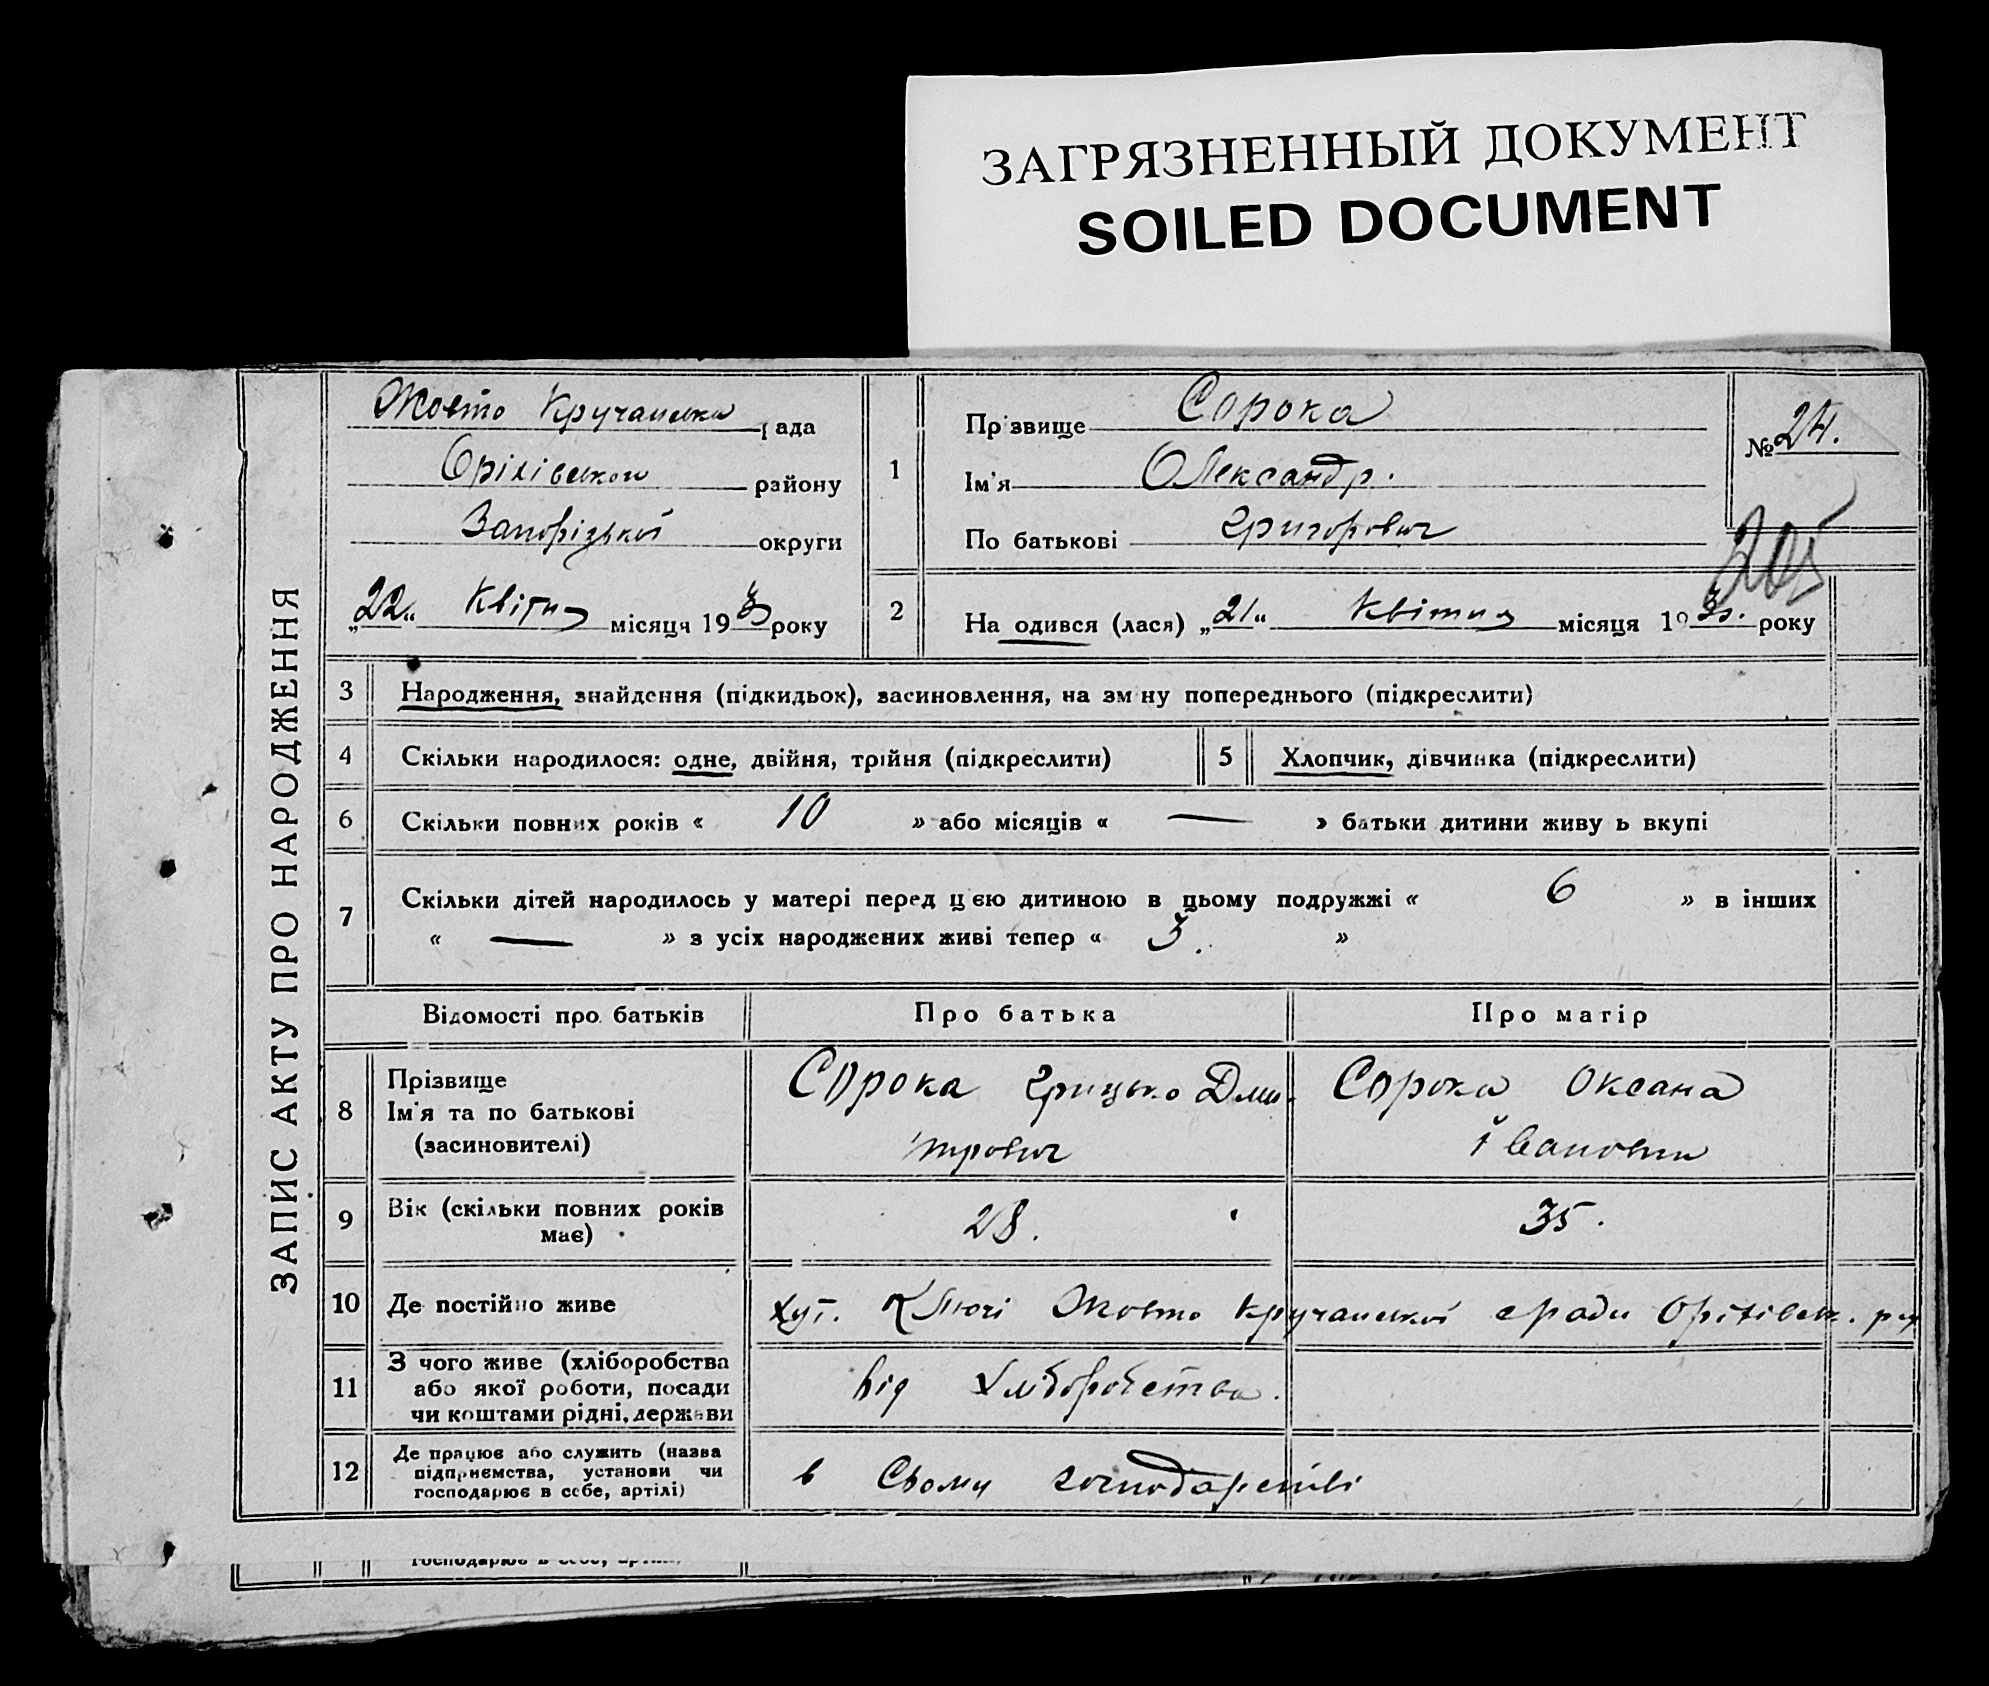 ЗАГРЯЗНЕННЫЙ ДОКУМЕНТ
SOILED DOCUMENT
ЗАПИС АКТУ ПРО НАРОДЖЕННЯ
Жовто Кручанська рада
Оріхівської району
Запоріжької округи
„22“ Квітня місяця 1930 року
1
Прізвище Сорока
Ім'я Олександр.
По батькові Григорович
№ 24.
205
2
На одився (лася) „21“ Квітня місяця 1930. року
3 Народження, знайдення (підкидьок), засиновлення, на зм ну попереднього (підкреслити)
4 Скільки народилося: одне, двійня, трійня (підкреслити)
5 Хлопчик, дівчинка (підкреслити)
6 Скільки повних років « 10 » або місяців « — » батьки дитини живу ь вкупі
7 Скільки дітей народилось у матері перед цією дитиною в цьому подружжі « 6 » в інших
« — » з усіх народжених живі тепер « 3. »
Відомості про батьків Про батька Про матір
8 Прізвище
Ім'я та по батькові
(засиновителі)
Сорока Грицько Дми-
трович
Сорока Оксана
Івановна
9 Вік (скільки повних років
має)
28.
35.
10 Де постійно живе хут. Ключі Жовто Кручанської с ради Оріхівськ. р-ну
11 З чого живе (хліборобства
або якої роботи, посади
чи коштами рідні, держави
від хліборобства.
12 Де працює або служить (назва
підприємства, установи чи
господарює в себе, артілі)
в Свому господарстві
господарює в себе, артілі)